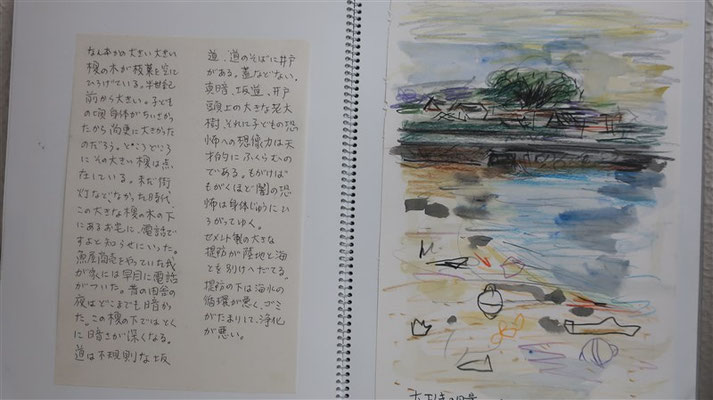 なん本かの大きい大きい
榎の木が枝葉を空に
ひろげている。半世紀
前から大きい。子ども
の頃身体がちいさかっ
たから尚更に大きかった
のだろう。ところどころ
にその大きい榎は点
在している。まだ街
灯などなかった時代、
この大きな榎の木の下
にあるお宅に、電話で
すよと知らせにいった。
魚屋商売をやっていた我
が家には早目に電話
がついた。昔の田舎の
夜はどこまでも暗かっ
た。この榎の下ではとく
に暗さが深くなる。
道は不規則な坂
道、道のそばに井戸
がある。蓋などない。
真暗、坂道、井戸
頭上の大きな老大
樹、それに子どもの恐
怖への想像力は天
才的にふくらむの
である。もがけば
もがくほど闇の恐
怖は身体じゅうにひ
ろがってゆく。
セメント製の大きな
堤防が陸地と海
とを別けへだてる。
堤防の下は海水の
循環が悪く、ゴミ
がたまりして、浄化
が悪い。